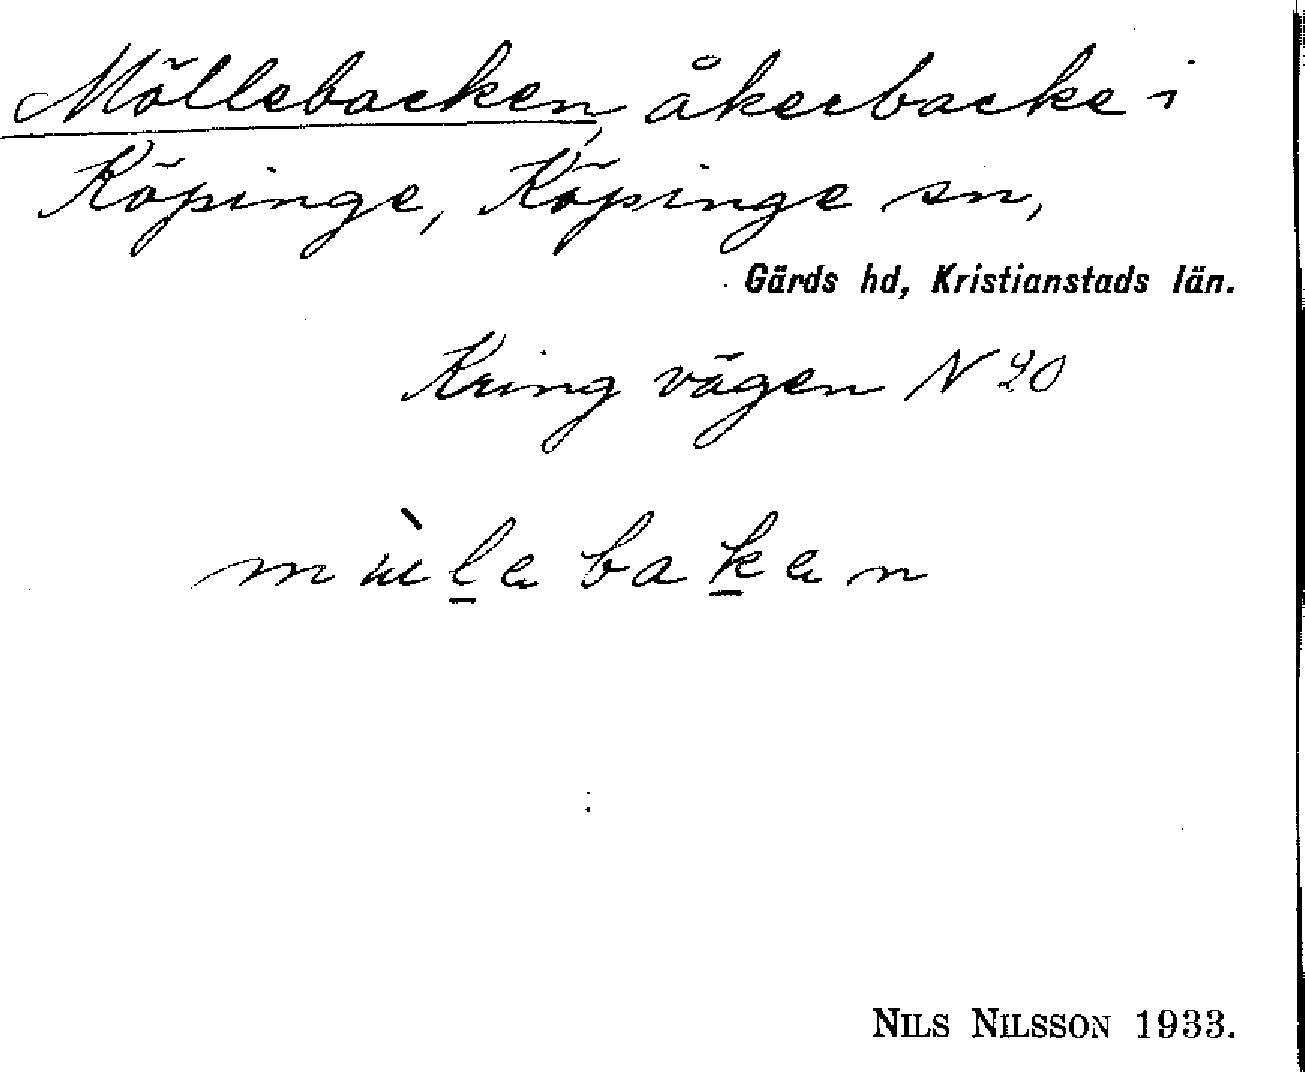 Möllebacken, åkerbacke i
Köpinge, Köpinge sn,
Gärds hd, Kristianstads län.
Kring vägen N 20
NILS NILSSON 1933.